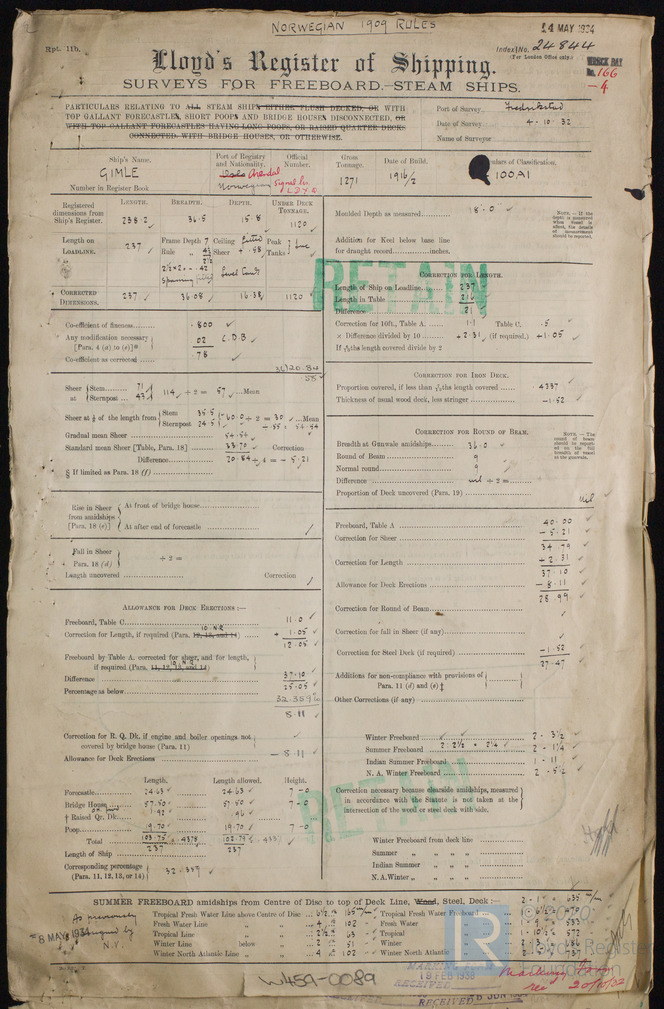 NORWEGIAN 1909 RULES
24 MAY 1934
Rpt. 11b.
Index No. 24844
(For London Office only.)
Lloyd's Register of Shipping.
WRECK DAY
No. 166
-4
SURVEYS FOR FREEBOARD.—STEAM SHIPS.
PARTICULARS RELATING TO ALL STEAM SHIPS EITHER FLUSH DECKED, OR WITH
TOP GALLANT FORECASTLES, SHORT POOPS AND BRIDGE HOUSES DISCONNECTED, OR
WITH TOP GALLANT FORECASTLES HAVING LONG POOPS, OR RAISED QUARTER DECKS
CONNECTED WITH BRIDGE HOUSES, OR OTHERWISE.
Port of Survey Fredrikstad
Date of Survey 4-10-32
Name of Surveyor
Ship's Name. GIMLE
Number in Register Book
Port of Registry and Nationality. Oslo Arendal Norwegian
Official Number. Signal Lr. L.D.Y.O.
Gross Tonnage. 1271
Date of Build. 1916/2
Particulars of Classification. 100A1
Registered dimensions from Ship's Register. LENGTH. 238.2 BREADTH. 36.5 DEPTH. 15.8 UNDER DECK TONNAGE. 1120
Length on LOADLINE. 237
Frame Depth 7 Ceiling fitted Peak Tanks
CORRECTED DIMENSIONS. 237 36.08 16.38 1120
Moulded Depth as measured 18.0
NOTE.—If the depth is measured when vessel is afloat, the details of measurement should be reported.
Addition for Keel below base line
for draught record inches.
RETAIN
CORRECTION FOR LENGTH.
Length of Ship on Loadline 237
Length in Table 216
Difference 21
Correction for 10ft., Table A. 1.1 Table C. .5
× Difference divided by 10 +2.31 (if required.) +1.05
If 6/10ths length covered divide by 2
Co-efficient of fineness .800
Any modification necessary [Para. 4 (a) to (e)]* 02 C.D.B
Co-efficient as corrected 78
CORRECTION FOR IRON DECK.
Proportion covered, if less than 7/10ths length covered .4337
Thickness of usual wood deck, less stringer -1.52
Sheer at Stem 71 Sternpost 43 114 ÷ 2 = 57 Mean
Sheer at 1/8 of the length from Stem 35.5 Sternpost 24.5 60.0 ÷ 2 = 30 Mean
Gradual mean Sheer 54.54
Standard mean Sheer [Table, Para. 18] 33.70 Correction
Difference 20.84 ÷ 4 = -5.21
§ If limited as Para. 18 (f)
CORRECTION FOR ROUND OF BEAM.
Breadth at Gunwale amidships 36.0
Round of Beam 9
Normal round 9
Difference nil ÷ 2 =
Proportion of Deck uncovered (Para. 19) Nil
NOTE.—The round of beam should be reported on the full breadth of vessel at the gunwale.
Rise in Sheer from amidships [Para. 18 (e)]
At front of bridge house
At after end of forecastle
Fall in Sheer Para. 18 (d) ÷ 2 =
Length uncovered Correction
Freeboard, Table A 40.00
Correction for Sheer -5.21
34.79
Correction for Length +2.31
37.10
Allowance for Deck Erections -8.11
28.99
Correction for Round of Beam
Correction for fall in Sheer (if any)
Correction for Steel Deck (if required) -1.52
27.47
Additions for non-compliance with provisions of Para. 11 (d) and (e) ‡
Other Corrections (if any)
ALLOWANCE FOR DECK ERECTIONS :—
Freeboard, Table C 11.0
Correction for Length, if required (Para. 12, 13, and 14) + 1.05
12.05
Freeboard by Table A. corrected for sheer, and for length,
if required (Para. 11, 12, 13, and 14) 37.10
Difference 25.05
Percentage as below 32.359%
8.11
Correction for R. Q. Dk. if engine and boiler openings not covered by bridge house (Para. 11)
Allowance for Deck Erections -8.11
Winter Freeboard 2-3½
Summer Freeboard 2-1¼
Indian Summer Freeboard 1-11
N. A. Winter Freeboard 2-5½
Length. Length allowed. Height.
Forecastle 24.63 24.63 7-0
Bridge House 57.50 57.50 7-0
† Raised Qr. Dk. 1.92 .96
Poop 19.70 19.70 7-0
Total 103.75 .4378 102.79 .4337
Length of Ship 237 237
Corresponding percentage (Para. 11, 12, 13, or 14) 32.359
RETAIN
Correction necessary because clearside amidships, measured
in accordance with the Statute is not taken at the
intersection of the wood or steel deck with side.
Winter Freeboard from deck line
Summer „ „ „ „
Indian Summer „ „ „ „
N. A. Winter „ „ „ „
SUMMER FREEBOARD amidships from Centre of Disc to top of Deck Line, Wood, Steel, Deck :— 2-1 = 635 m/m
As previously assigned by N.V.
8 MAY 1934
Tropical Fresh Water Line above Centre of Disc 6½ 165 m/m Tropical Fresh Water Freeboard
Fresh Water Line „ „ 4 102 Fresh Water „ 533
Tropical Line „ „ 2½ Tropical „ 1-10½ 572
Winter Line below „ 2 51 Winter „ 2-3 686
Winter North Atlantic Line „ „ 4 102 Winter North Atlantic „
W459-0089
19 FEB 1938
RECEIVED
RECEIVED
RECEIVED
Markings
rec 20/10/32
LR
© 2020
Lloyd's Register
Foundation